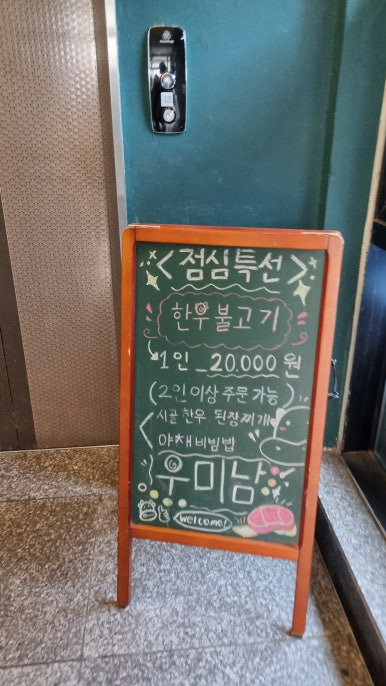 <점심특선>
한우불고기
1인_20.000원
(2인이상 주문 가능)
시골한우 된장찌개
야채비빔밥
우미남
welcome!